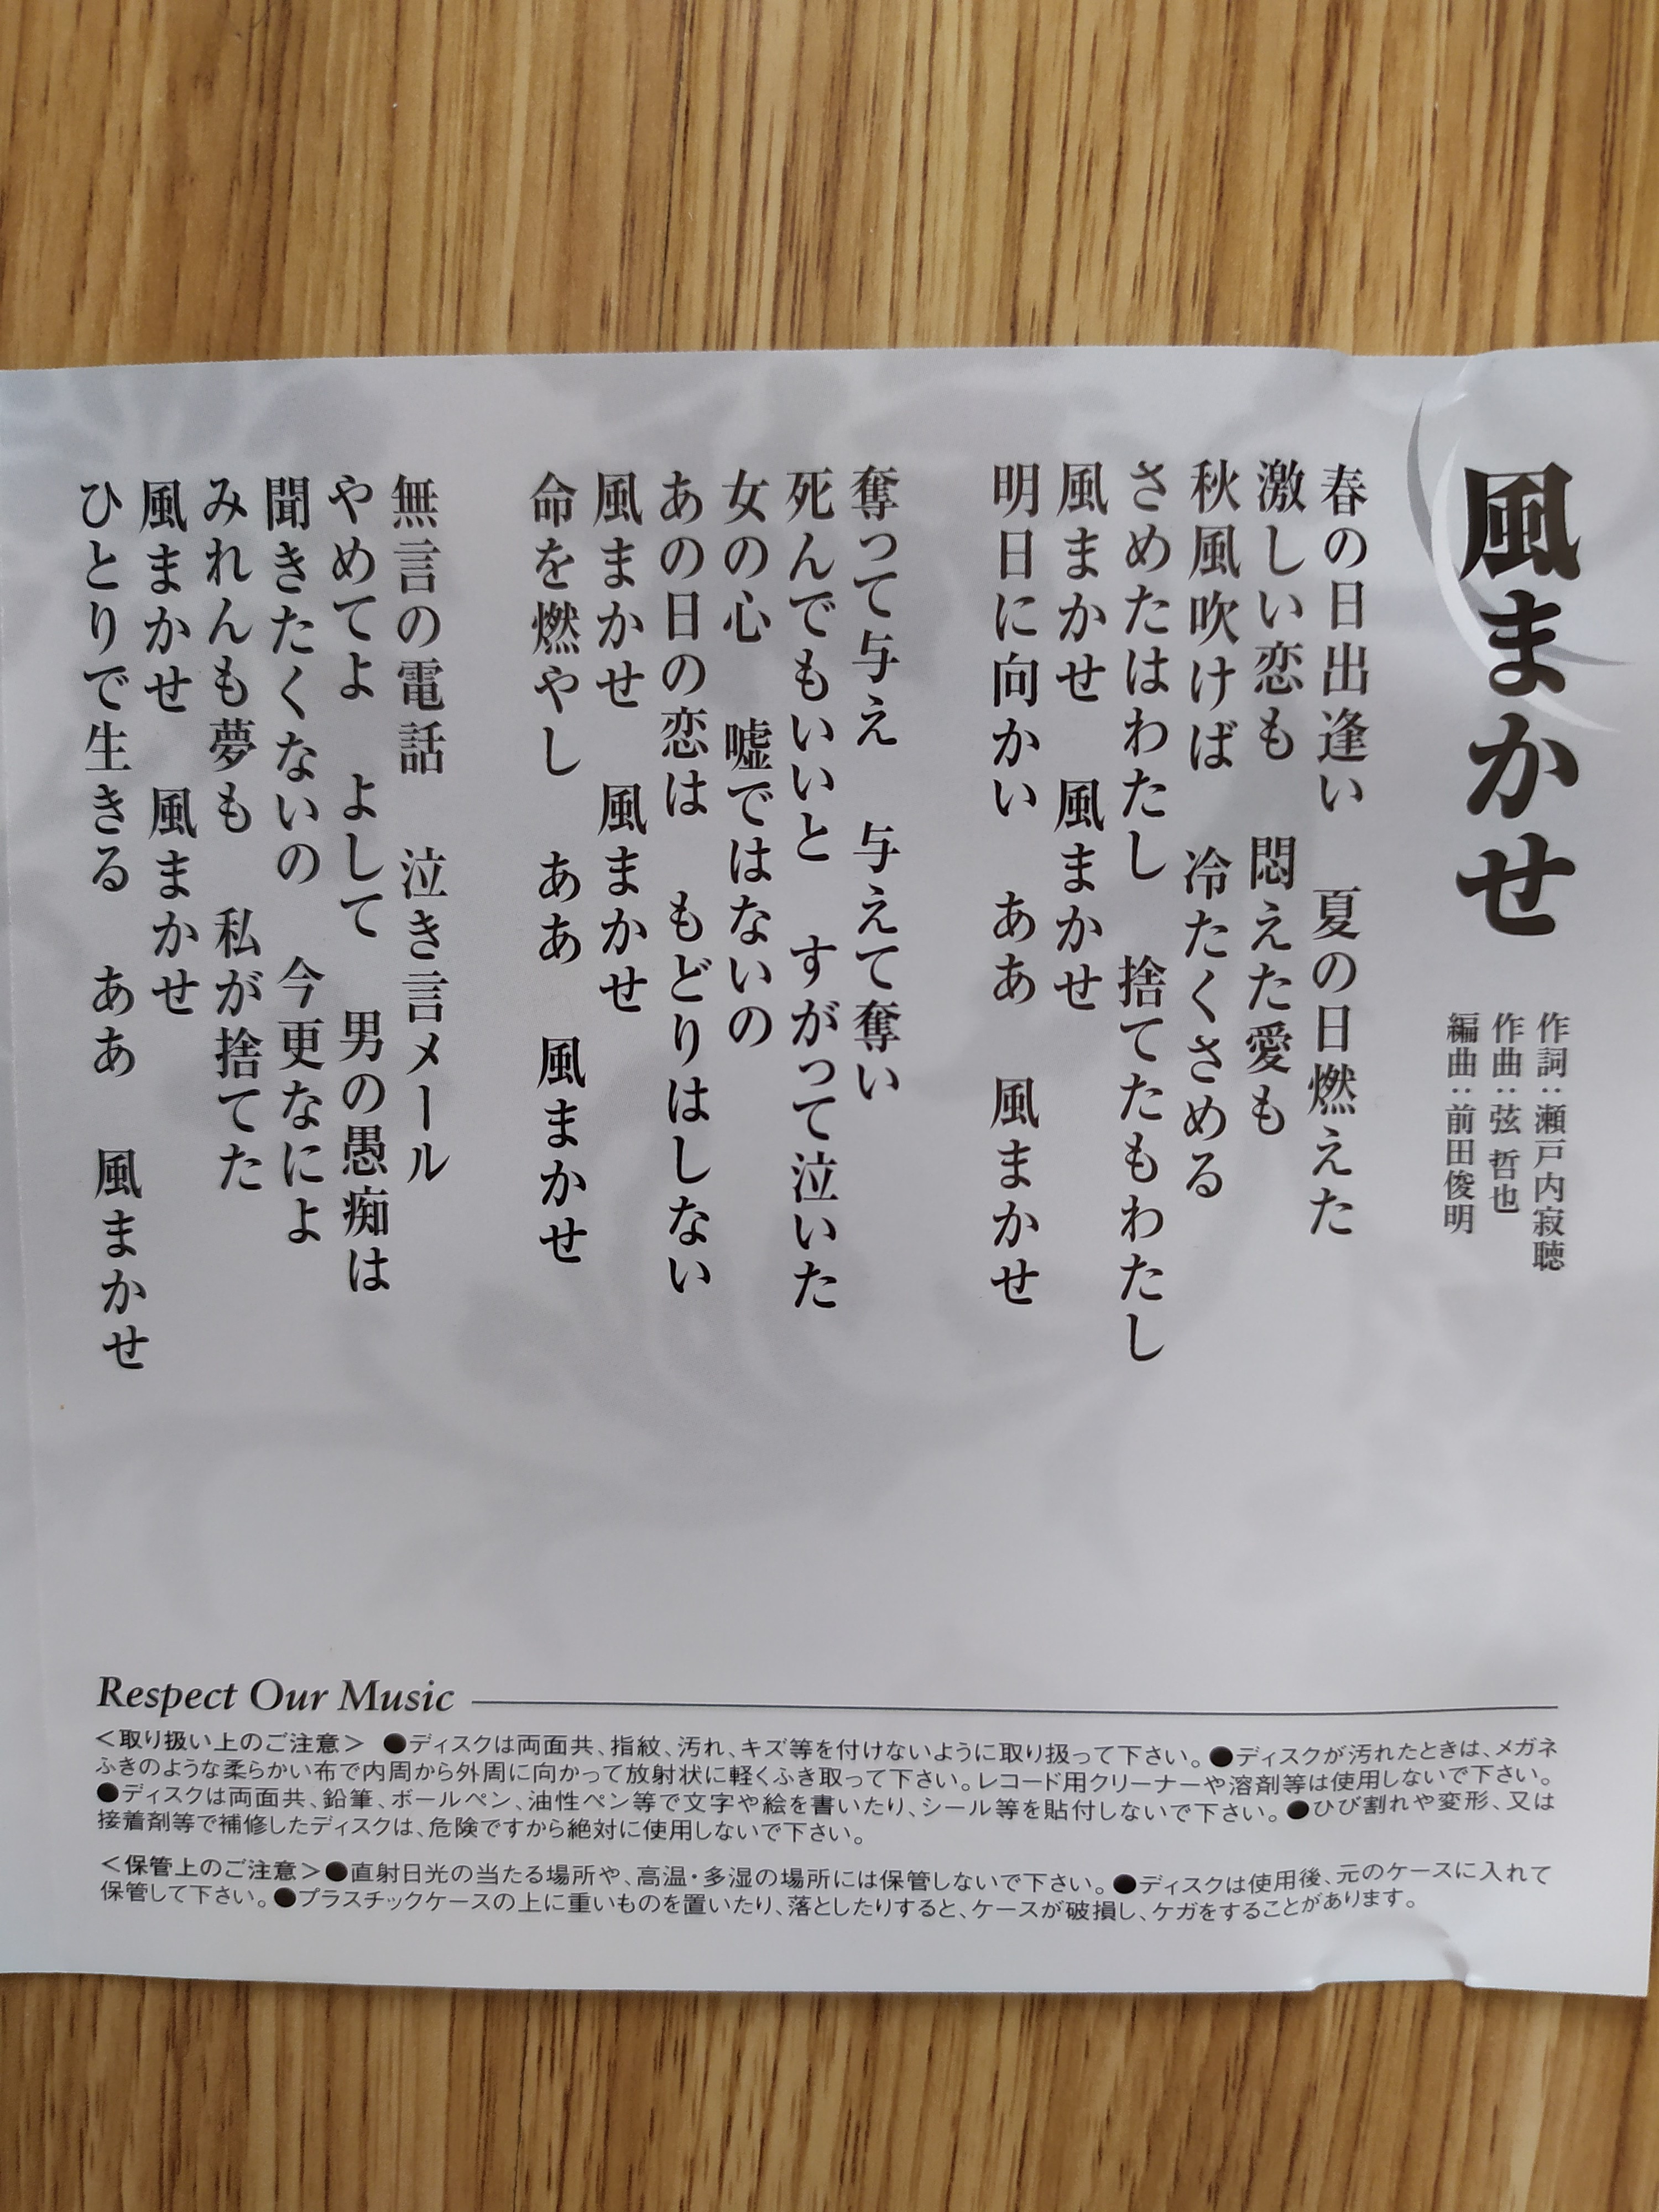 風まかせ
作詞：瀬戸内寂聴
作曲：弦 哲也
編曲：前田俊明
春の日出逢い　夏の日燃えた
激しい恋も　悶えた愛も
秋風吹けば　冷たくさめる
さめたはわたし　捨てたもわたし
風まかせ　風まかせ
明日に向かい　ああ　風まかせ
奪って与え　与えて奪い
死んでもいいと　すがって泣いた
女の心　嘘ではないの
あの日の恋は　もどりはしない
風まかせ　風まかせ
命を燃やし　ああ　風まかせ
無言の電話　泣き言メール
やめてよ　よして　男の愚痴は
聞きたくないの　今更なによ
みれんも夢も　私が捨てた
風まかせ　風まかせ
ひとりで生きる　ああ　風まかせ
Respect Our Music
＜取り扱い上のご注意＞ ●ディスクは両面共、指紋、汚れ、キズ等を付けないように取り扱って下さい。●ディスクが汚れたときは、メガネ
ふきのような柔らかい布で内周から外周に向かって放射状に軽くふき取って下さい。レコード用クリーナーや溶剤等は使用しないで下さい。
●ディスクは両面共、鉛筆、ボールペン、油性ペン等で文字や絵を書いたり、シール等を貼付しないで下さい。●ひび割れや変形、又は
接着剤等で補修したディスクは、危険ですから絶対に使用しないで下さい。
＜保管上のご注意＞●直射日光の当たる場所や、高温・多湿の場所には保管しないで下さい。●ディスクは使用後、元のケースに入れて
保管して下さい。●プラスチックケースの上に重いものを置いたり、落としたりすると、ケースが破損し、ケガをすることがあります。